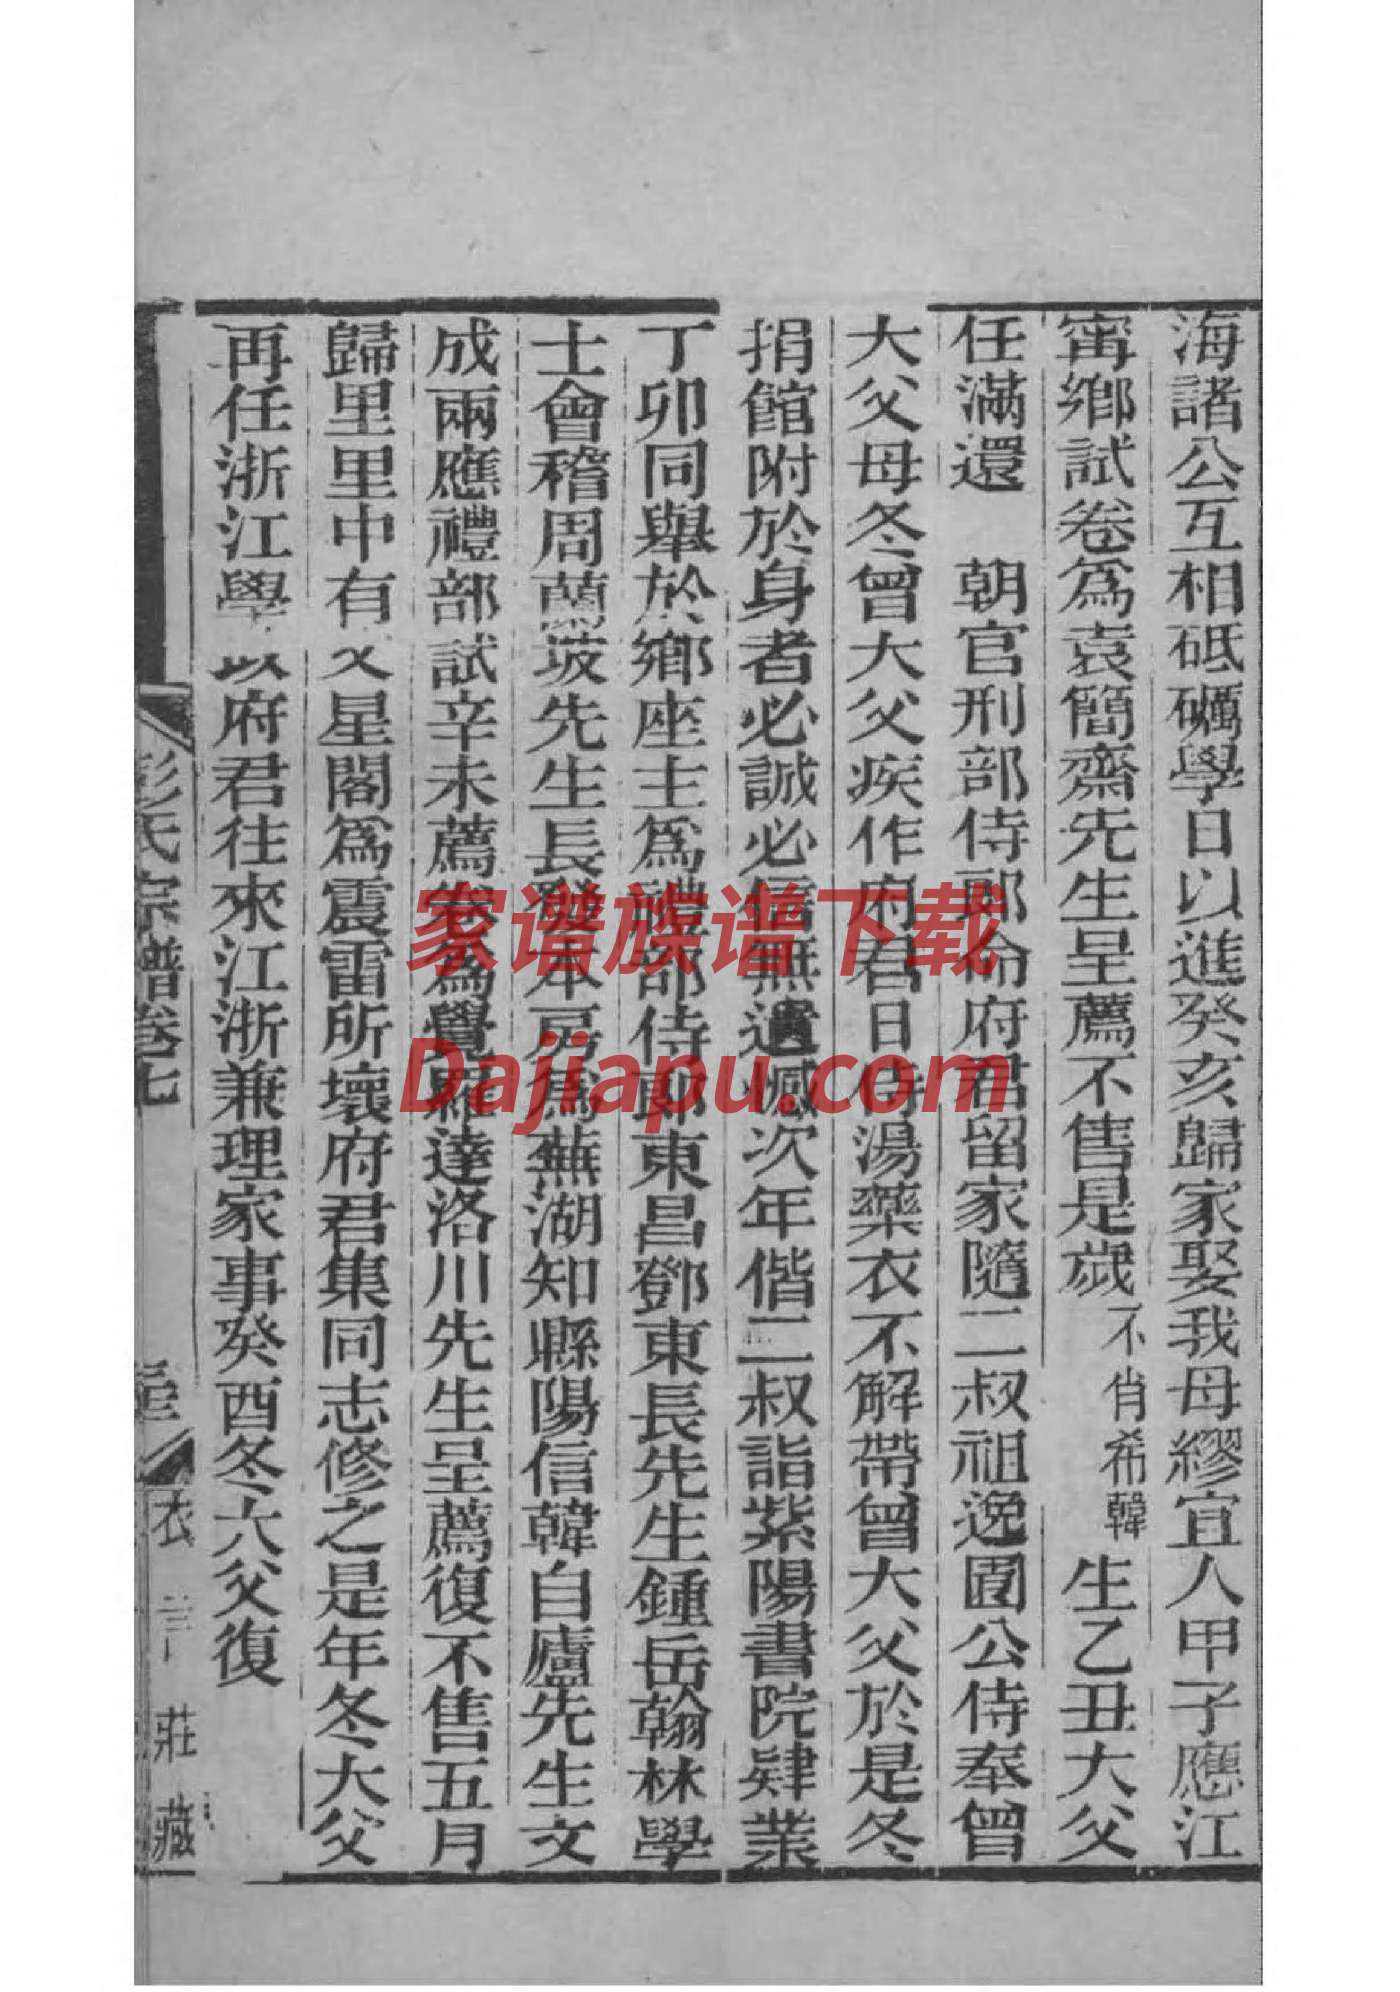 海諸公互相砥礪學日以進癸亥歸家娶我母繆宜人甲子應江
甯鄉試卷爲袁簡齋先生呈薦不售是歲不肖希韓生乙丑大父
任滿還　朝官刑部侍郎命府君留家隨二叔祖逸園公侍奉曾
大父母冬曾大父疾作府君日侍湯藥衣不解帶曾大父於是冬
捐館附於身者必誠必信無遺憾次年偕二叔詣紫陽書院肄業
丁卯同舉於鄉座主爲禮部侍郎東昌鄧東長先生鍾岳翰林學
士會稽周蘭坡先生長發本房爲蕪湖知縣陽信韓自廬先生文
成兩應禮部試辛未薦卷爲覺羅達洛川先生呈薦復不售五月
歸里里中有文星閣爲震雷所壞府君集同志修之是年冬大父
再任浙江學以府君往來江浙兼理家事癸酉冬大父復
彭氏宗譜卷七
衣言莊藏
家谱族谱下载
Dajiapu.com